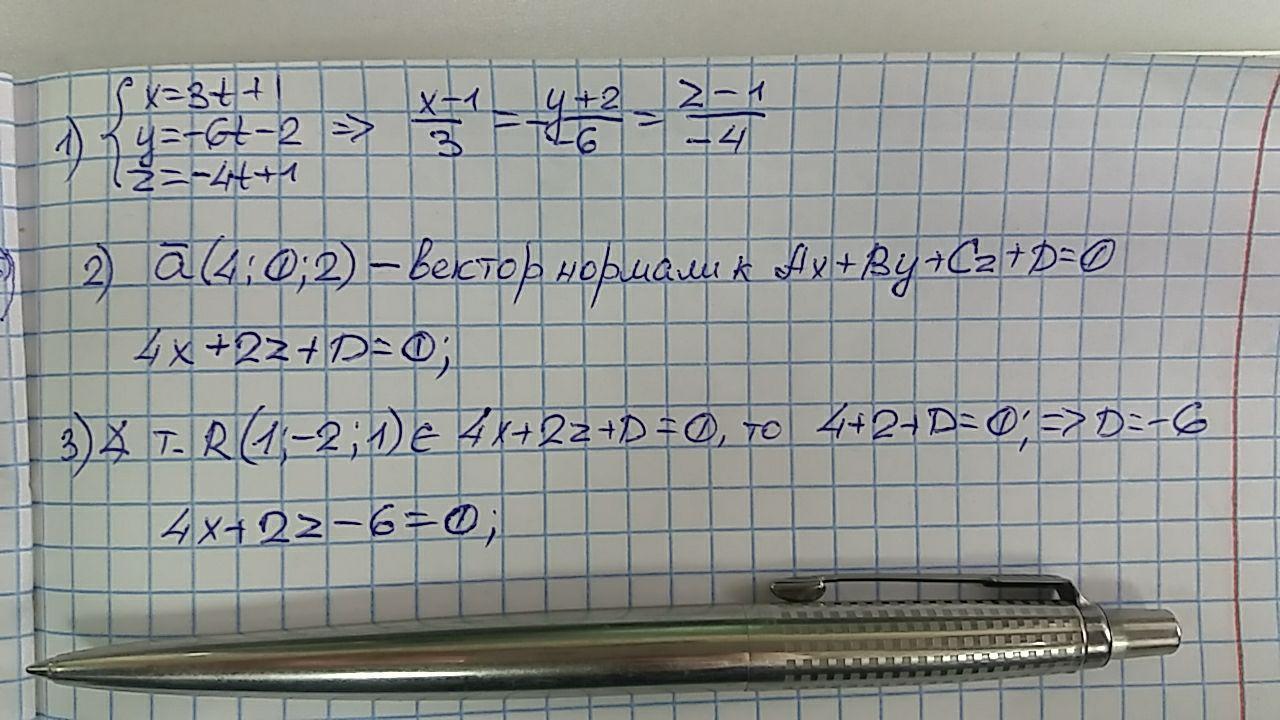 1) { x=3t+1
y=-6t-2 => x-1/3 = y+2/-6 = z-1/-4
z=-4t+1
2) a̅(4;0;2) – вектор нормали к Ax+By+Cz+D=0
4x+2z+D=0;
3) т. R(1;-2;1)∈ 4x+2z+D=0, то 4+2+D=0; => D=-6
4x+2z-6=0;